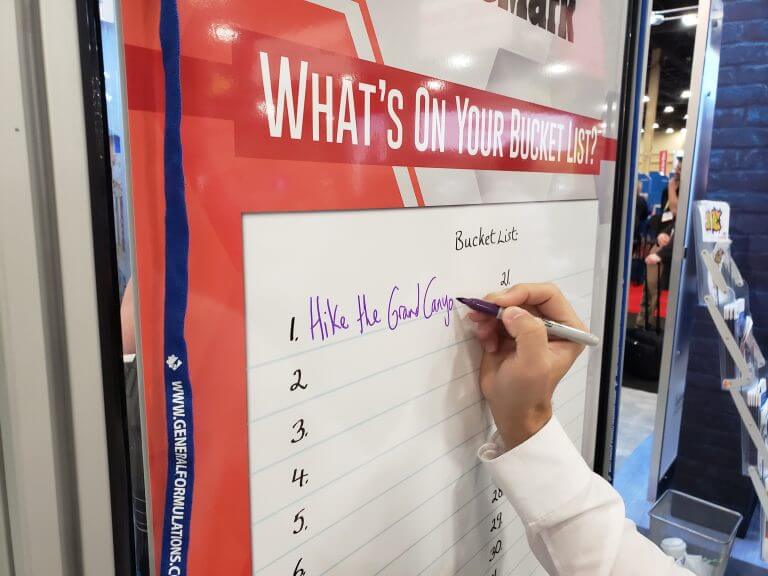 Mark
WHAT'S ON YOUR BUCKET LIST?
Bucket List:
21.
1. Hike the Grand Canyo
2
3.
4.
5.
6
28
29.
30.
WWW.GENERALFORMULATIONS.C